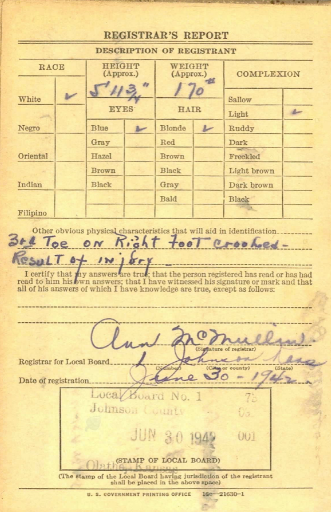 REGISTRAR'S REPORT
DESCRIPTION OF REGISTRANT
RACE HEIGHT (Approx.) WEIGHT (Approx.) COMPLEXION
5' 11 3/4" 170#
White ✓ EYES HAIR Sallow
Light ✓
Negro Blue ✓ Blonde ✓ Ruddy
Gray Red Dark
Oriental Hazel Brown Freckled
Brown Black Light brown
Indian Black Gray Dark brown
Bald Black
Filipino
Other obvious physical characteristics that will aid in identification
3rd Toe on Right foot crooked-
Result of injury
I certify that my answers are true; that the person registered has read or has had
read to him his own answers; that I have witnessed his signature or mark and that
all of his answers of which I have knowledge are true, except as follows:
Ann McMullin
(Signature of registrar)
Registrar for Local Board 1 Johnson Kans
(Number) (City or county) (State)
Date of registration June 30 - 1942
Local Board No. 1 73
Johnson County
JUN 30 1942 001
Olathe, Kansas
(STAMP OF LOCAL BOARD)
(The stamp of the Local Board having jurisdiction of the registrant
shall be placed in the above space)
U. S. GOVERNMENT PRINTING OFFICE 16—21630-1